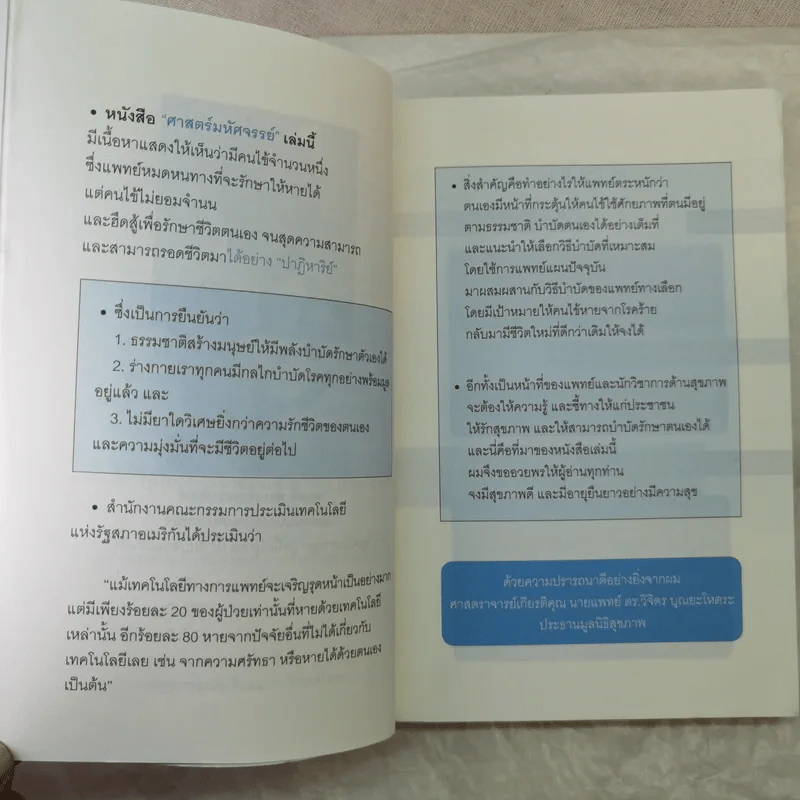 • หนังสือ "ศาสตร์มหัศจรรย์" เล่มนี้
มีเนื้อหาแสดงให้เห็นว่ามีคนไข้จำนวนหนึ่ง
ซึ่งแพทย์หมดหนทางที่จะรักษาให้หายได้
แต่คนไข้ไม่ยอมจำนน
และฮึดสู้เพื่อรักษาชีวิตตนเอง จนสุดความสามารถ
และสามารถรอดชีวิตมาได้อย่าง "ปาฏิหาริย์"
• ซึ่งเป็นการยืนยันว่า
1. ธรรมชาติสร้างมนุษย์ให้มีพลังบำบัดรักษาตัวเองได้
2. ร่างกายเราทุกคนมีกลไกบำบัดโรคทุกอย่างพร้อมมูล
อยู่แล้ว และ
3. ไม่มียาใดวิเศษยิ่งกว่าความรักชีวิตของตนเอง
และความมุ่งมั่นที่จะมีชีวิตอยู่ต่อไป
• สำนักงานคณะกรรมการประเมินเทคโนโลยี
แห่งรัฐสภาอเมริกันได้ประเมินว่า
"แม้เทคโนโลยีทางการแพทย์จะเจริญรุดหน้าเป็นอย่างมาก
แต่มีเพียงร้อยละ 20 ของผู้ป่วยเท่านั้นที่หายด้วยเทคโนโลยี
เหล่านั้น อีกร้อยละ 80 หายจากปัจจัยอื่นที่ไม่ได้เกี่ยวกับ
เทคโนโลยีเลย เช่น จากความศรัทธา หรือหายได้ด้วยตนเอง
เป็นต้น"
• สิ่งสำคัญคือทำอย่างไรให้แพทย์ตระหนักว่า
ตนเองมีหน้าที่กระตุ้นให้คนไข้ใช้ศักยภาพที่ตนมีอยู่
ตามธรรมชาติ บำบัดตนเองได้อย่างเต็มที่
และแนะนำให้เลือกวิธีบำบัดที่เหมาะสม
โดยใช้การแพทย์แผนปัจจุบัน
มาผสมผสานกับวิธีบำบัดของแพทย์ทางเลือก
โดยมีเป้าหมายให้คนไข้หายจากโรคร้าย
กลับมามีชีวิตใหม่ที่ดีกว่าเดิมให้จงได้
• อีกทั้งเป็นหน้าที่ของแพทย์และนักวิชาการด้านสุขภาพ
จะต้องให้ความรู้ และชี้ทางให้แก่ประชาชน
ให้รักสุขภาพ และให้สามารถบำบัดรักษาตนเองได้
และนี่คือที่มาของหนังสือเล่มนี้
ผมจึงขออวยพรให้ผู้อ่านทุกท่าน
จงมีสุขภาพดี และมีอายุยืนยาวอย่างมีความสุข
ด้วยความปรารถนาดีอย่างยิ่งจากผม
ศาสตราจารย์เกียรติคุณ นายแพทย์ ดร.วิจิตร บุณยะโหตระ
ประธานมูลนิธิสุขภาพ